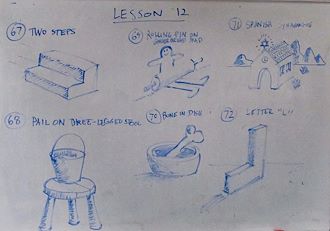 LESSON 12
67 TWO STEPS
69 ROLLING PIN ON
GINGERBREAD MAN
71 SPANISH SYNAGOGUE
68 PAIL ON THREE-LEGGED STOOL
70 BONE IN DISH
72 LETTER "L"